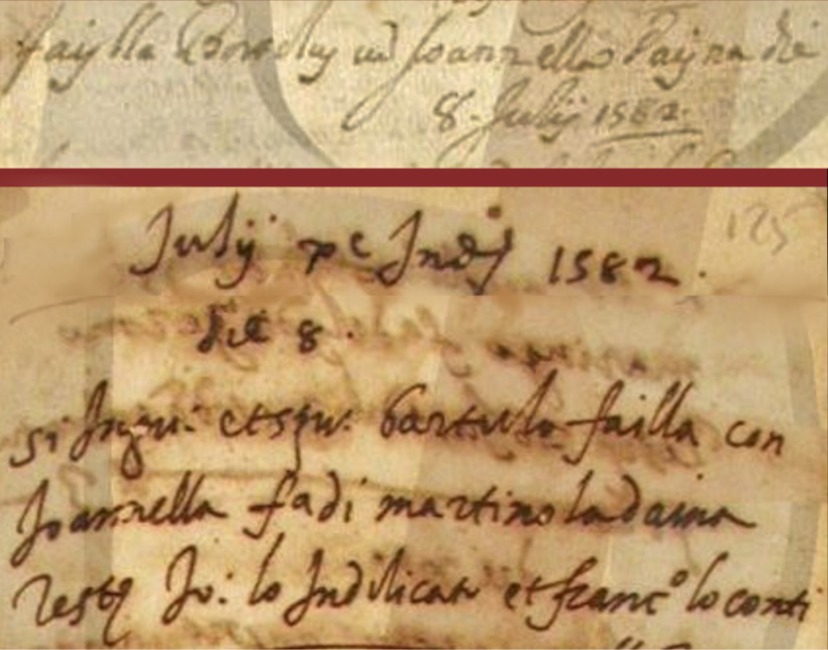 faylla Bartolus cu Joannella Dayna die
8. Julij 1582.
125
Julij pe Indj 1582.
die 8.
si Ingu: et spu: bartulo failla con
Joannella f a di martino ladaina
test Jo: lo Indilicato et franco lo conti